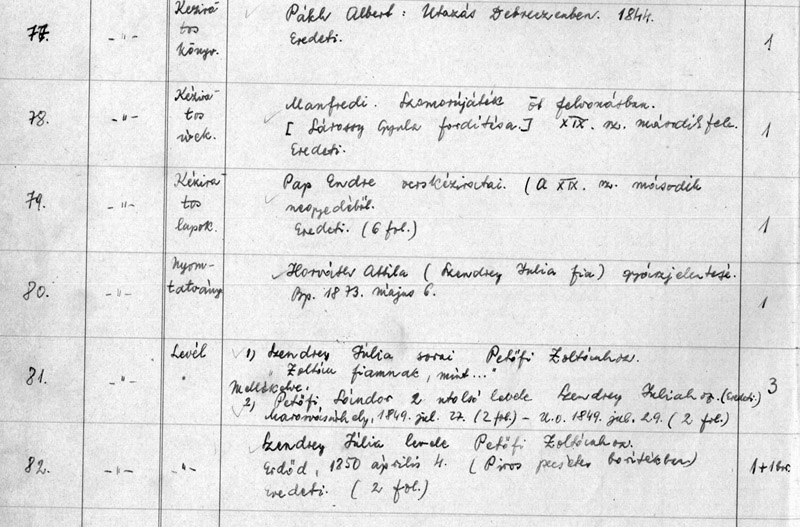 77. -"- Kézira- Pákh Albert: Utazás Debreczenben. 1844.
tos Eredeti. 1
könyv.
78. -"- Kézira- Manfredi. Szomorújáték öt felvonásban.
tos [Sárossy Gyula fordítása.] XIX. sz. második fele. 1
ívek. Eredeti.
79. -"- Kézira- Pap Endre verskéziratai. (A XIX. sz. második
tos negyedéből.
lapok. Eredeti. (6 fol.) 1
80. -"- Nyom- Horváth Attila (Szendrey Julia fia) gyászjelentése.
tatvány Bp. 1873. május 6. 1
81. -"- Levél 1) Szendrey Júlia sorai Petőfi Zoltánhoz.
"Zoltán fiamnak, mint..."
Mellékelve:
2) Petőfi Sándor 2 utolsó levele Szendrey Juliahoz. (Eredeti) 3
Marosvásárhely, 1849. jul. 27. (2 fol.) – U.o. 1849. jul. 29. (2 fol.)
82. -"- -"- Szendrey Júlia levele Petőfi Zoltánhoz.
Erdőd, 1850 április 4. (Piros pecsétes borítékban) 1+1br.
Eredeti. (2 fol.)